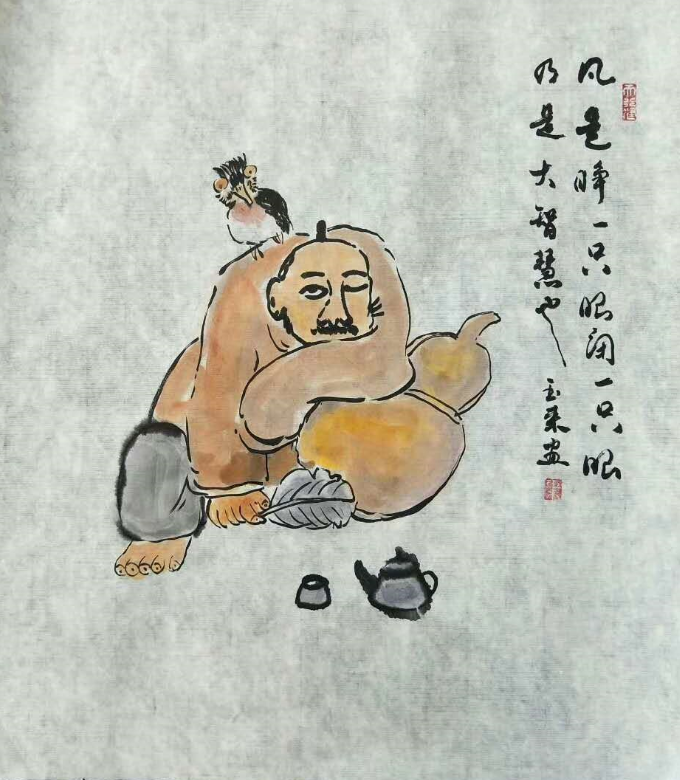 凡是睁一只眼闭一只眼
乃是大智慧也
玉来画